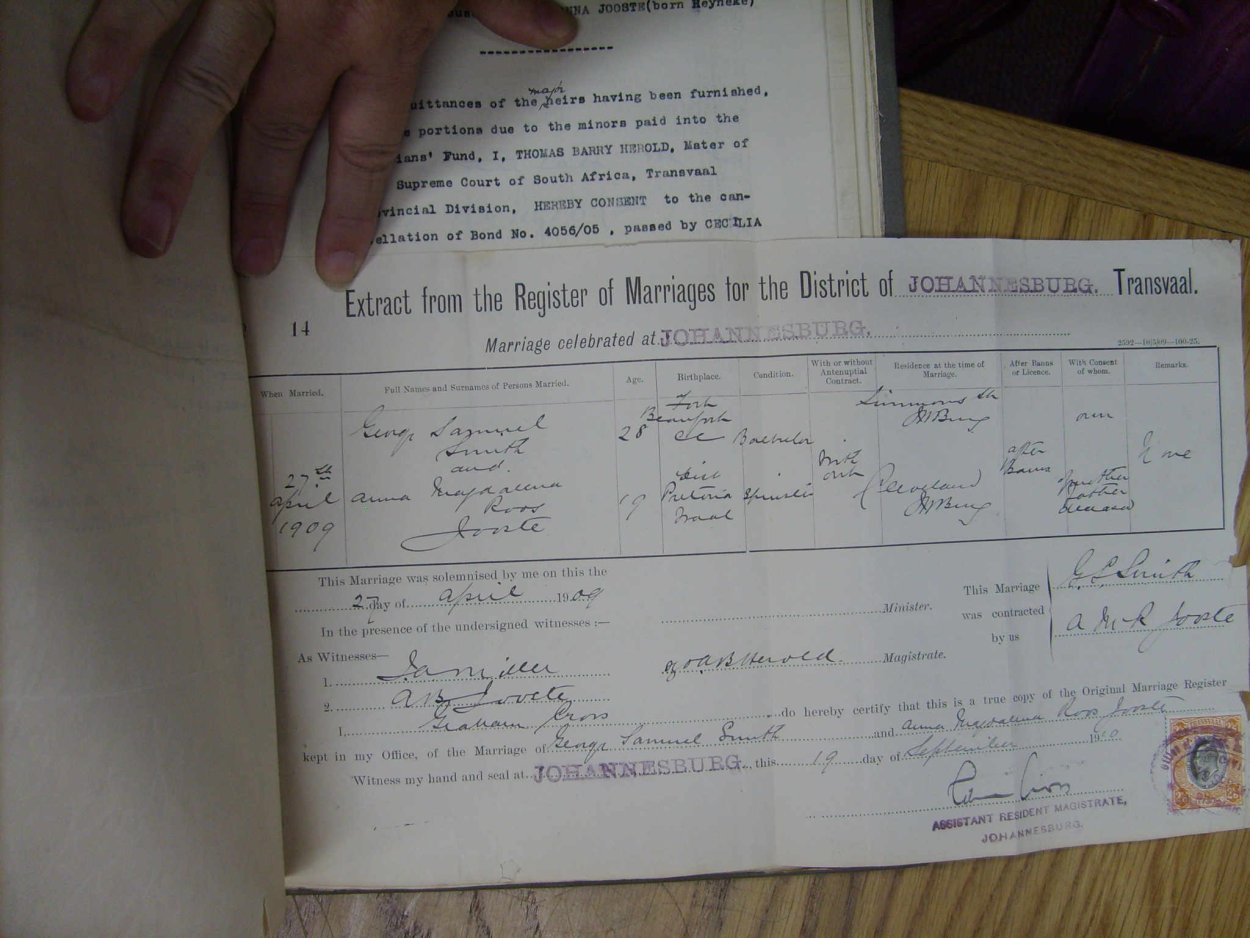 NNA JOOSTE(born Heyneke)
major
uittances of the heirs having been furnished,
portions due to the minors paid into the
ians' Fund, I, THOMAS BARRY HEROLD, Mater of
Supreme Court of South Africa, Transvaal
vincial Division, HEREBY CONSENT to the can-
ellation of Bond No. 4056/05 , passed by CECILIA
Extract from the Register of Marriages for the District of JOHANNESBURG. Transvaal.
14
Marriage celebrated at JOHANNESBURG.
2592—10/5/09—100-25.
When Married. Full Names and Surnames of Persons Married. Age. Birthplace. Condition. With or without Antenuptial Contract. Residence at the time of Marriage. After Banns or Licence. With Consent of whom. Remarks.
George Samuel Smith 28 Fort Beaufort CC Bachelor Simmons St JHBurg own
and
27th April 1909 with out after Banns None
Anna Magdalena Roos Jooste 19 Dist Pretoria Tvaal Spinster Cleveland JHBurg mother father deceased
This Marriage was solemnised by me on this the
27 day of April 1909
Minister.
This Marriage was contracted by us
G. S. Smith
A M R Jooste
In the presence of the undersigned witnesses :—
As Witnesses—
1. Miller
2. A B Jooste
A B Herold Magistrate.
I, Graham Cross do hereby certify that this is a true copy of the Original Marriage Register
kept in my Office, of the Marriage of George Samuel Smith and Anna Magdalena Roos Jooste
Witness my hand and seal at JOHANNESBURG, this 19 day of September 1910.
ASSISTANT RESIDENT MAGISTRATE,
JOHANNESBURG.